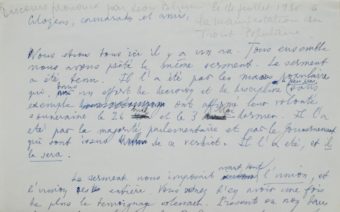 Discours prononcé par Léon Blum le 14 juillet 1936 à
la manifestation du
Front Populaire
Citoyens, camarades et amis,
Nous étions tous ici il y a un an. Tous ensemble
nous avons prêté le même serment. Le serment
a été tenu. Il l'a été par les masses populaires
qui, un effort de et de discipline sans
exemple ont affirmé leur volonté
souveraine le 26 et le 3 dernier. Il l'a
été par la majorité parlementaire et par le gouvernement
qui sont issus de ce verdict. Il l'a été, et il
le sera.
Le serment nous imposait avant tout l'union, et
l'union reste entière. Vous en avoir une fois
de plus le témoignage